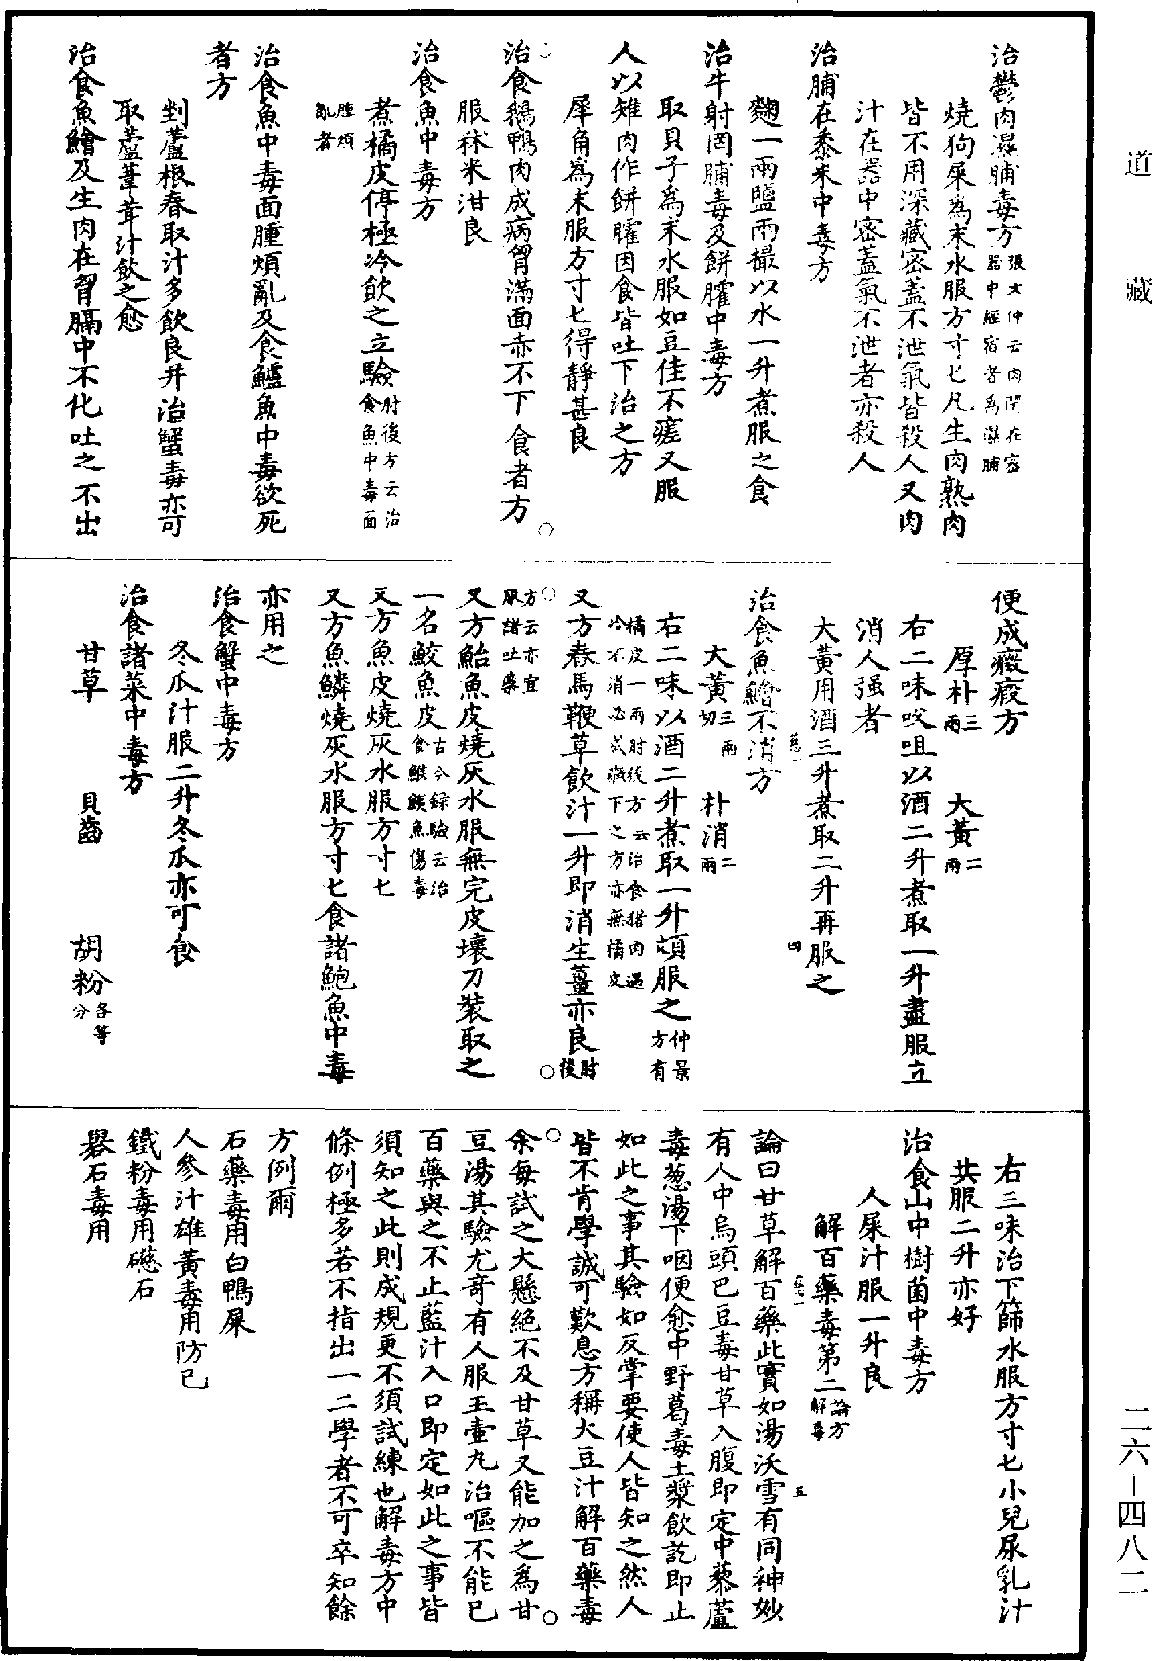 道藏
二六—四八二
治鬱肉濕脯毒方張文仲云肉閉在密
器中經宿者為濕脯
燒狗屎為末水服方寸匕凡生肉熟肉
皆不用深藏密蓋不泄氣皆殺人又肉
汁在器中密蓋氣不泄者亦殺人
治脯在黍米中毒方
麴一兩鹽兩撮以水一升煮服之食
治牛射罔脯毒及餅臛中毒方
取貝子為末水服如豆佳不瘥又服
人以雉肉作餅臛因食皆吐下治之方
犀角為末服方寸匕得靜甚良
治食鵝鴨肉成病胷滿面赤不下食者方
服秫米泔良
治食魚中毒方
煮橘皮停極冷飲之立驗肘後方云治
食魚中毒面
腫煩
亂者
治食魚中毒面腫煩亂及食鱸魚中毒欲死
者方
剉蘆根舂取汁多飲良并治蟹毒亦可
取蘆葦茸汁飲之愈
治食魚鱠及生肉在胷膈中不化吐之不出
便成癥瘕方
厚朴三兩 大黃二兩
右二味㕮咀以酒二升煮取一升盡服立
消人强者
大黃用酒三升煮取二升再服之
治食魚鱠不消方
四
大黃三兩切 朴消二兩
右二味以酒二升煮取一升頓服之仲景
方有
橘皮一兩肘後方云治食猪肉遇
冷不消必成癥下之方亦無橘皮
又方舂馬鞭草飲汁一升即消生薑亦良肘
後
方云亦宜
服諸吐藥
又方鮐魚皮燒灰水服無完皮壞刀裝取之
一名鮫魚皮古今録驗云治
食鯸鮧魚傷毒
又方魚皮燒灰水服方寸匕
又方魚鱗燒灰水服方寸匕食諸鮑魚中毒
亦用之
治食蟹中毒方
冬瓜汁服二升冬瓜亦可食
治食諸菜中毒方
甘草 貝齒 胡粉各等
分
右三味治下篩水服方寸匕小兒尿乳汁
共服二升亦好
治食山中樹菌中毒方
人屎汁服一升良
解百藥毒第二論方
解毒
五
論曰甘草解百藥此實如湯沃雪有同神妙
有人中烏頭巴豆毒甘草入腹即定中藜蘆
毒葱湯下咽便愈中野葛毒土漿飲訖即止
如此之事其驗如反掌要使人皆知之然人
皆不肯學誠可歎息方稱大豆汁解百藥毒
余每試之大懸絕不及甘草又能加之為甘
豆湯其驗尤竒有人服玉壺丸治嘔不能已
百藥與之不止藍汁入口即定如此之事皆
須知之此則成規更不須試練也解毒方中
條例極多若不指出一二學者不可卒知餘
方例爾
石藥毒用白鴨屎
人參汁雄黃毒用防已
鐵粉毒用磁石
礜石毒用